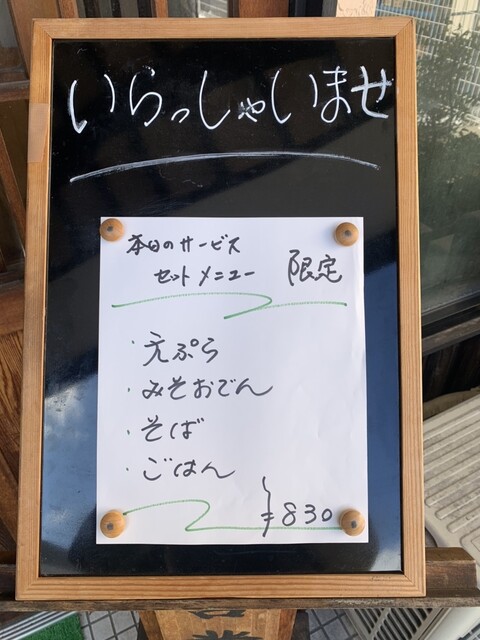 いらっしゃいませ
本日のサービス
セットメニュー 限定
・天ぷら
・みそおでん
・そば
・ごはん
¥830